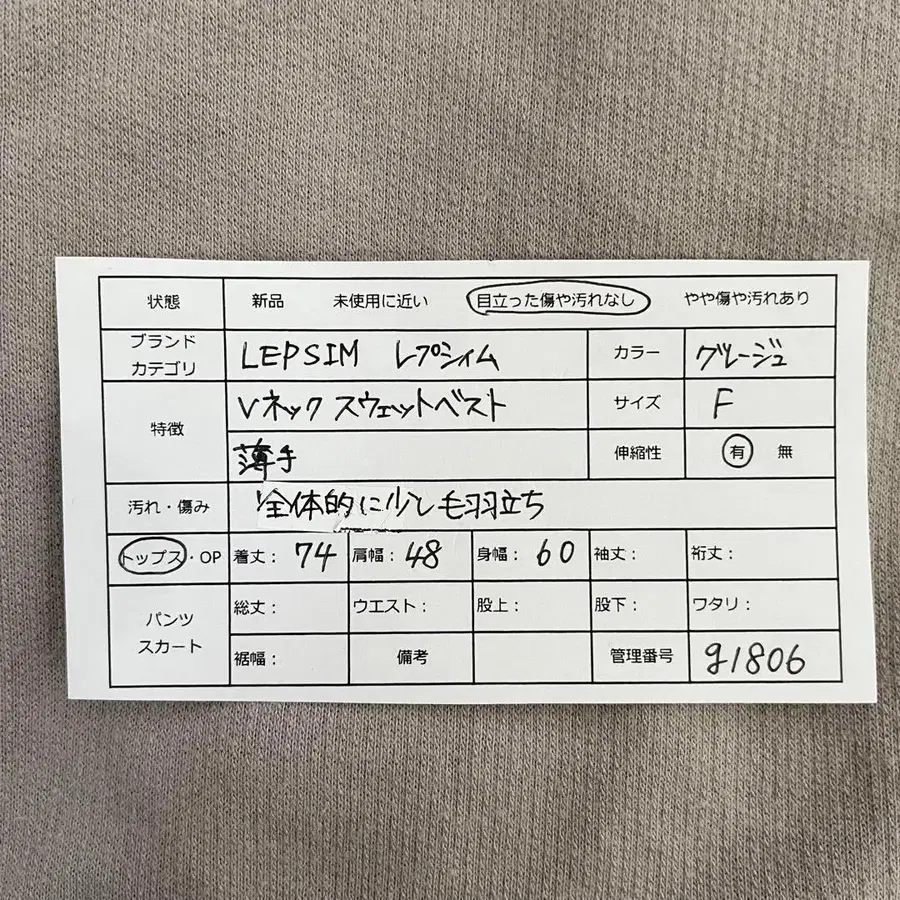 状態 新品 未使用に近い 目立った傷や汚れなし やや傷や汚れあり
ブランド
カテゴリ LEPSIM レプシィム カラー グレージュ
特徴 Vネック スウェットベスト サイズ F
薄手 伸縮性 有 無
汚れ・傷み 全体的に少し毛羽立ち
トップス・OP 着丈: 74 肩幅: 48 身幅: 60 袖丈: 裄丈:
パンツ
スカート 総丈: ウエスト: 股上: 股下: ワタリ:
裾幅: 備考 管理番号 g1806